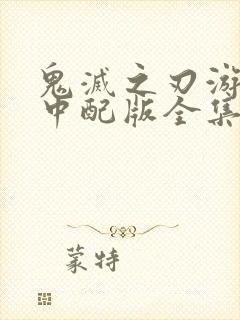 鬼滅之刃游
中配版全集
蒙特